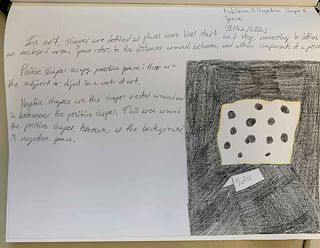 Positive & Negative Shapes &
Space
08/22/2021
In art, shapes are defined as places where lines start and stop, connecting to define
an enclosed area. Space refers to the distances around, between, and within components of a piece
Positive shapes occupy positive space: these are
the subject or object in a work of art.
Negative shapes are the shapes created around and
in between the positive shapes. This area around
the positive shapes, known as the background
is negative space.